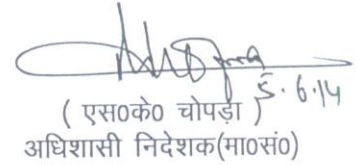 5.6.14
( एस०के० चोपड़ा )
अधिशासी निदेशक(मा०सं०)